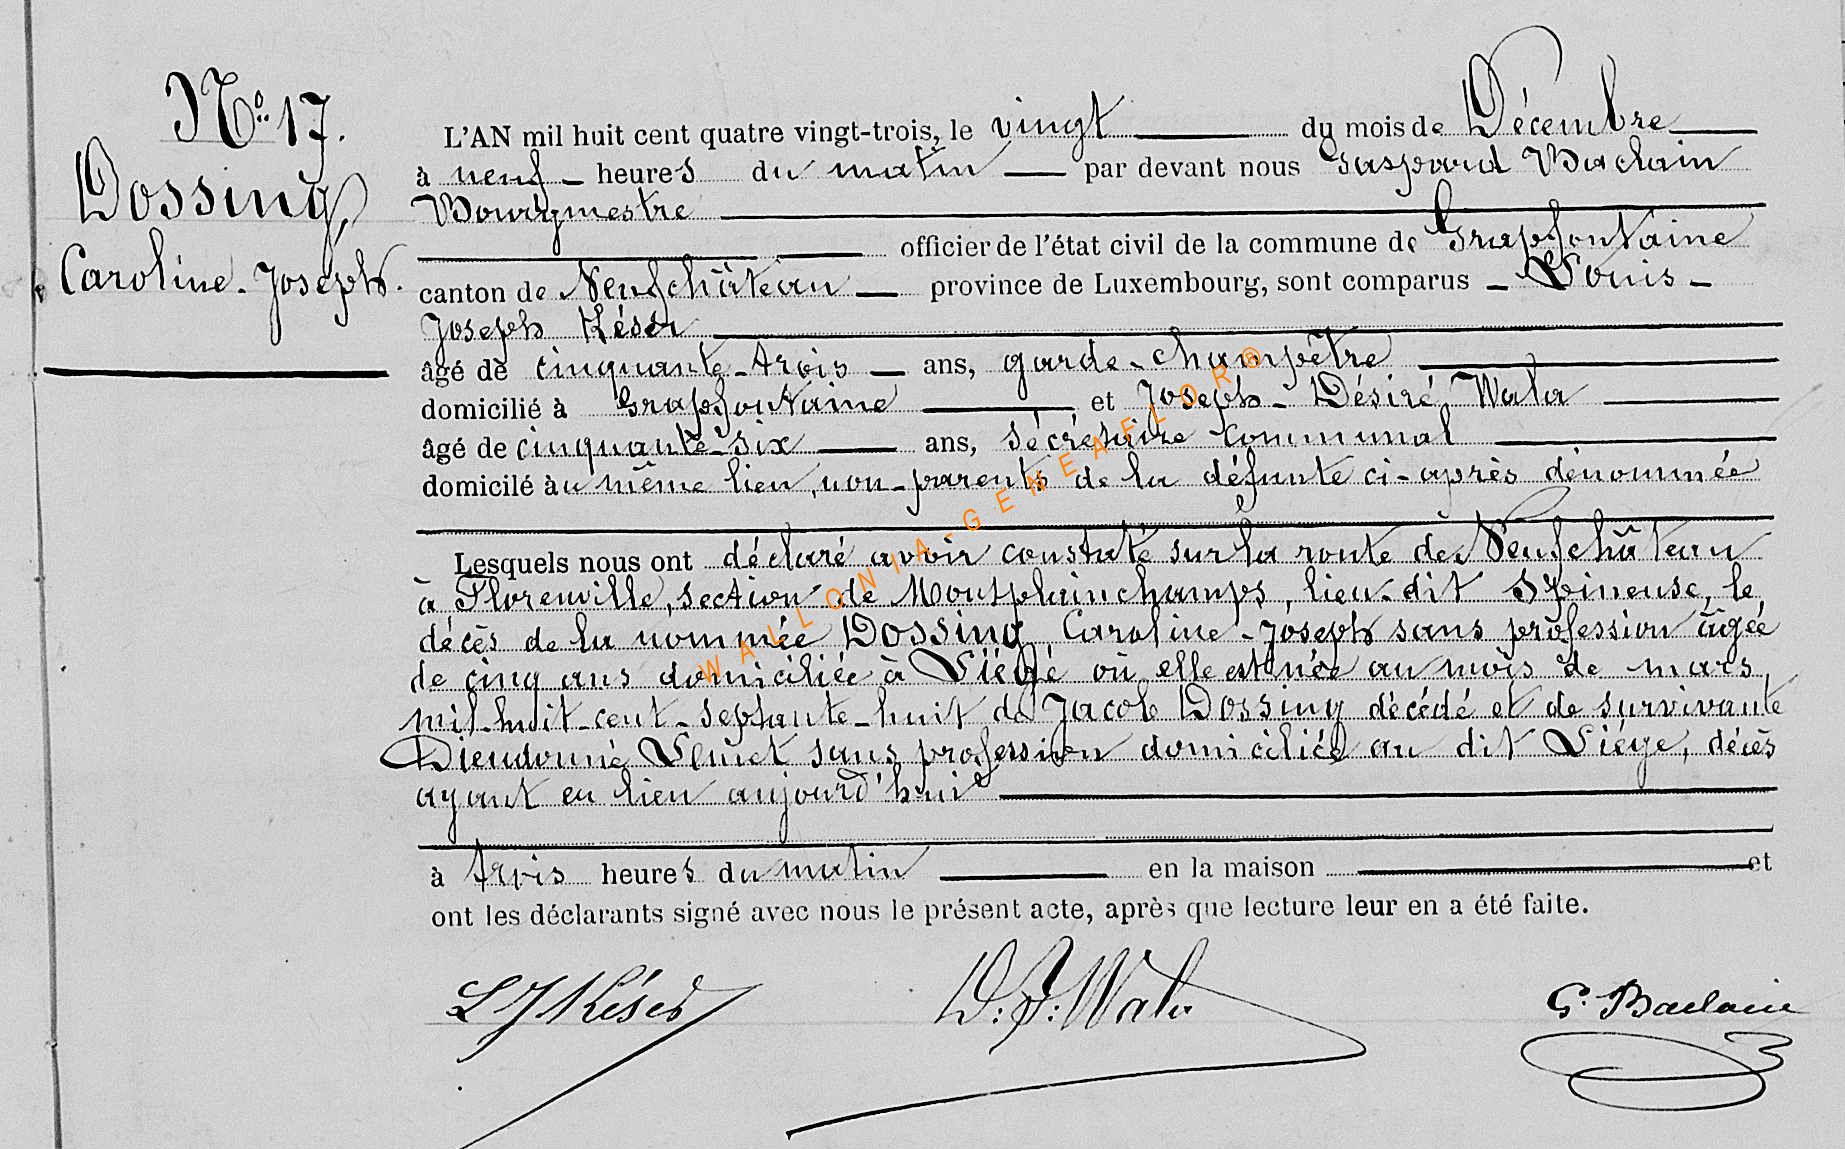 No. 17.
Dossing,
Caroline-Joseph.
L'AN mil huit cent quatre vingt-trois, le vingt du mois de Décembre
à neuf heures du matin par devant nous Gaspard Baclain
Bourgmestre
officier de l'état civil de la commune de Grapfontaine
canton de Neufchâteau province de Luxembourg, sont comparus - Louis -
Joseph Késer
âgé de cinquante-trois ans, garde-champêtre
domicilié à Grapfontaine et Joseph-Désiré Wala
âgé de cinquante-six ans, sécrétaire communal
domicilé àu même lieu, non-parents de la défunte ci-après dénommée
Lesquels nous ont déclaré avoir constaté sur la route de Neufchâteau
à Florenville, section de Montplainchamps, lieu-dit Spineuse, le
décès de la nommée Dossing Caroline-Joseph sans profession âgée
de cinq ans domiciliée à Liége où elle est née au mois de mars
mil-huit-cent-septante-huit de Jacob Dossing décédé et de survivante
Dieudonné sans profession domiciliée au dit Liége, décès
ayant eu lieu aujourd'hui
à trois heures du matin en la maison et
ont les déclarants signé avec nous le présent acte, après que lecture leur en a été faite.
L J Késer D. J. Wala G. Baclain
WALLONIA-GENEAFLOR®